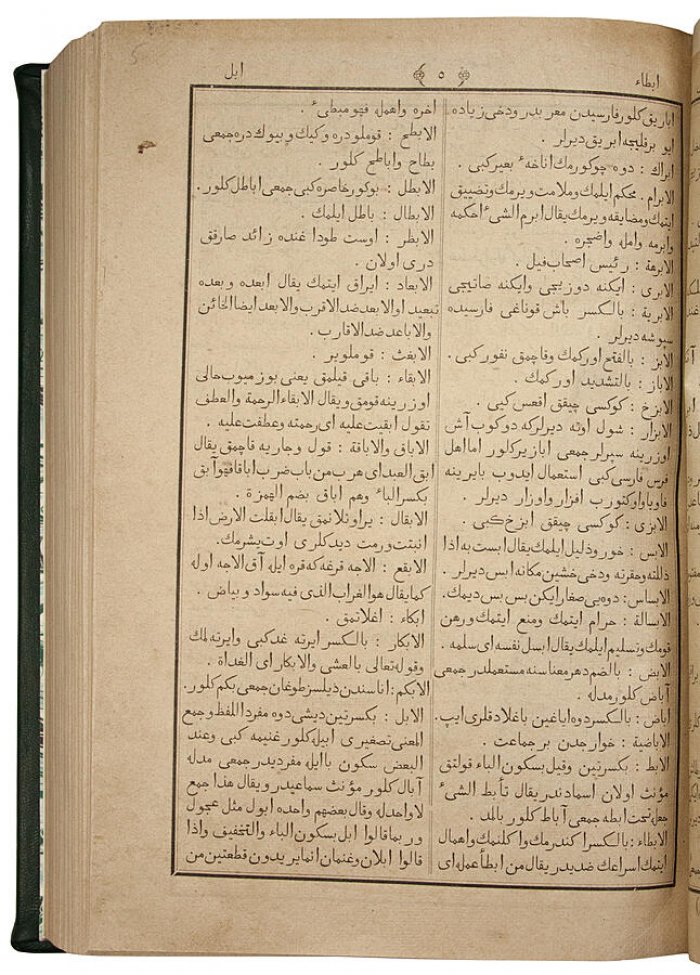 ابطاء
٥
ابل
اباريق كلور فارسيدن معربدر ودخى زياده
ايو برقليجه ابريق ديرلر .
ابراك : دوه چوكورمك اناخهٴ بعير كبى .
الابرام . محكم ايلمك وملامت ويرمك وتضييق
ايتمك ومضايقه ويرمك يقال ابرم الشىٴ احكمه
وابرمه وامله واضجره .
الابرهة : رئيس اصحاب فيل .
الابرى : ايكنه دوزيجى وايكنه صاتيجى
الابرية : بالكسر باش قوناغى فارسيده
سبوشه ديرلر .
الابز : بالفتح اوركمك وقاچمق نفور كبى .
الاباز : بالتشديد اوركمك .
الابزخ : كوكسى چيقق اقعس كبى .
الابزار : شول اوته ديرلركه دوكوب آش
اوزرينه سپرلر جمعى ابازير كلور اما اهل
فرس فارسى كبى استعمال ايدوب بايرينه
فاويا واو كتورب افزار واوزار ديرلر .
الابزى : كوكسى چيقق ابزخ كبى .
الابس : خور وذليل ايلمك يقال ابست به اذا
ذللته وحقرته ودخى خشين مكانه ابس ديرلر .
الابساس : دوه يى صغار ايكن بس بس ديمك .
الابسالة : حرام ايتمك ومنع ايتمك ورهن
قومك وتسليم ايلمك يقال ابسل نفسه اى سلمه .
الابض : بالضم دهر معناسنه مستعملدر جمعى
آباض كلور مدله .
اباض : بالكسر دوه اباغين باغلادقلرى ايپ .
الاباضية : خوارجدن بر جماعت .
الابط : بكسرتين وقيل بسكون الباء قولتق
مؤنث اولان اسماءندر يقال تأبط الشىٴ
جعل تحت ابطه جمعى آباط كلور بالمد .
الابطاء : بالكسر اكندرمك واكلنمك واهمال
ايتمك اسراعك ضديدر يقال من ابطأ عمله اى
اخره واهمله فهو مبطىٴ .
الابطح : قوملو دره وكيك وبيوك دره جمعى
بطاح واباطح كلور .
الابطل : بوكور خاصره كبى جمعى اباطل كلور .
الابطال : باطل ايلمك .
الابظر : اوست طوداغنده زائد صارقق
درى اولان .
الابعاد : ايراق ايتمك يقال ابعده وبعده
تبعيد او الابعد ضد الاقرب والابعد ايضا الخائن
والاباعد ضد الاقارب .
الابغث : قوملو ير .
الابقاء : باقى قيلمق يعنى بوزميوب حالى
اوزرينه قومق ويقال الابقاء الرحمة والعطف
تقول ابقيت عليه اى رحمته وعطفت عليه .
الاباق والاباقة : قول وجاريه قاچمق يقال
ابق العبد اى هرب من باب ضرب اباقا فهو آبق
بكسر الباءٴ وهم اباق بضم الهمزة .
الابقال : ير اوتلانمق يقال ابقلت الارض اذا
انبتت ورمت ديدكلرى اوت يشرمك .
الابقع : الاجه قرغه كه قره ايله آق الاجه اوله
كما يقال هو الغراب الذى فيه سواد وبياض .
ابكاء : اغلاتمق .
الابكار : بالكسر ايرته غد كبى وايرته لمك
وقوله تعالى بالعشى والابكار اى الغداة .
الابكم : اناسندن ديلسز طوغان جمعى بكم كلور .
الابل : بكسرتين ديشى دوه مفرد اللفظ وجمع
المعنى تصغيرى ابيل كلور غنيمه كبى وعند
البعض سكون باايله مفرديدر جمعى مدله
آبال كلور مؤنث سماعيدر ويقال هذا جمع
لا واحدله وقال بعضهم واحده ابول مثل عجول
وربما قالوا ابل بسكون الباء والتخفيف واذا
قالوا ابلان وغنمان انما يريدون قطعتين من